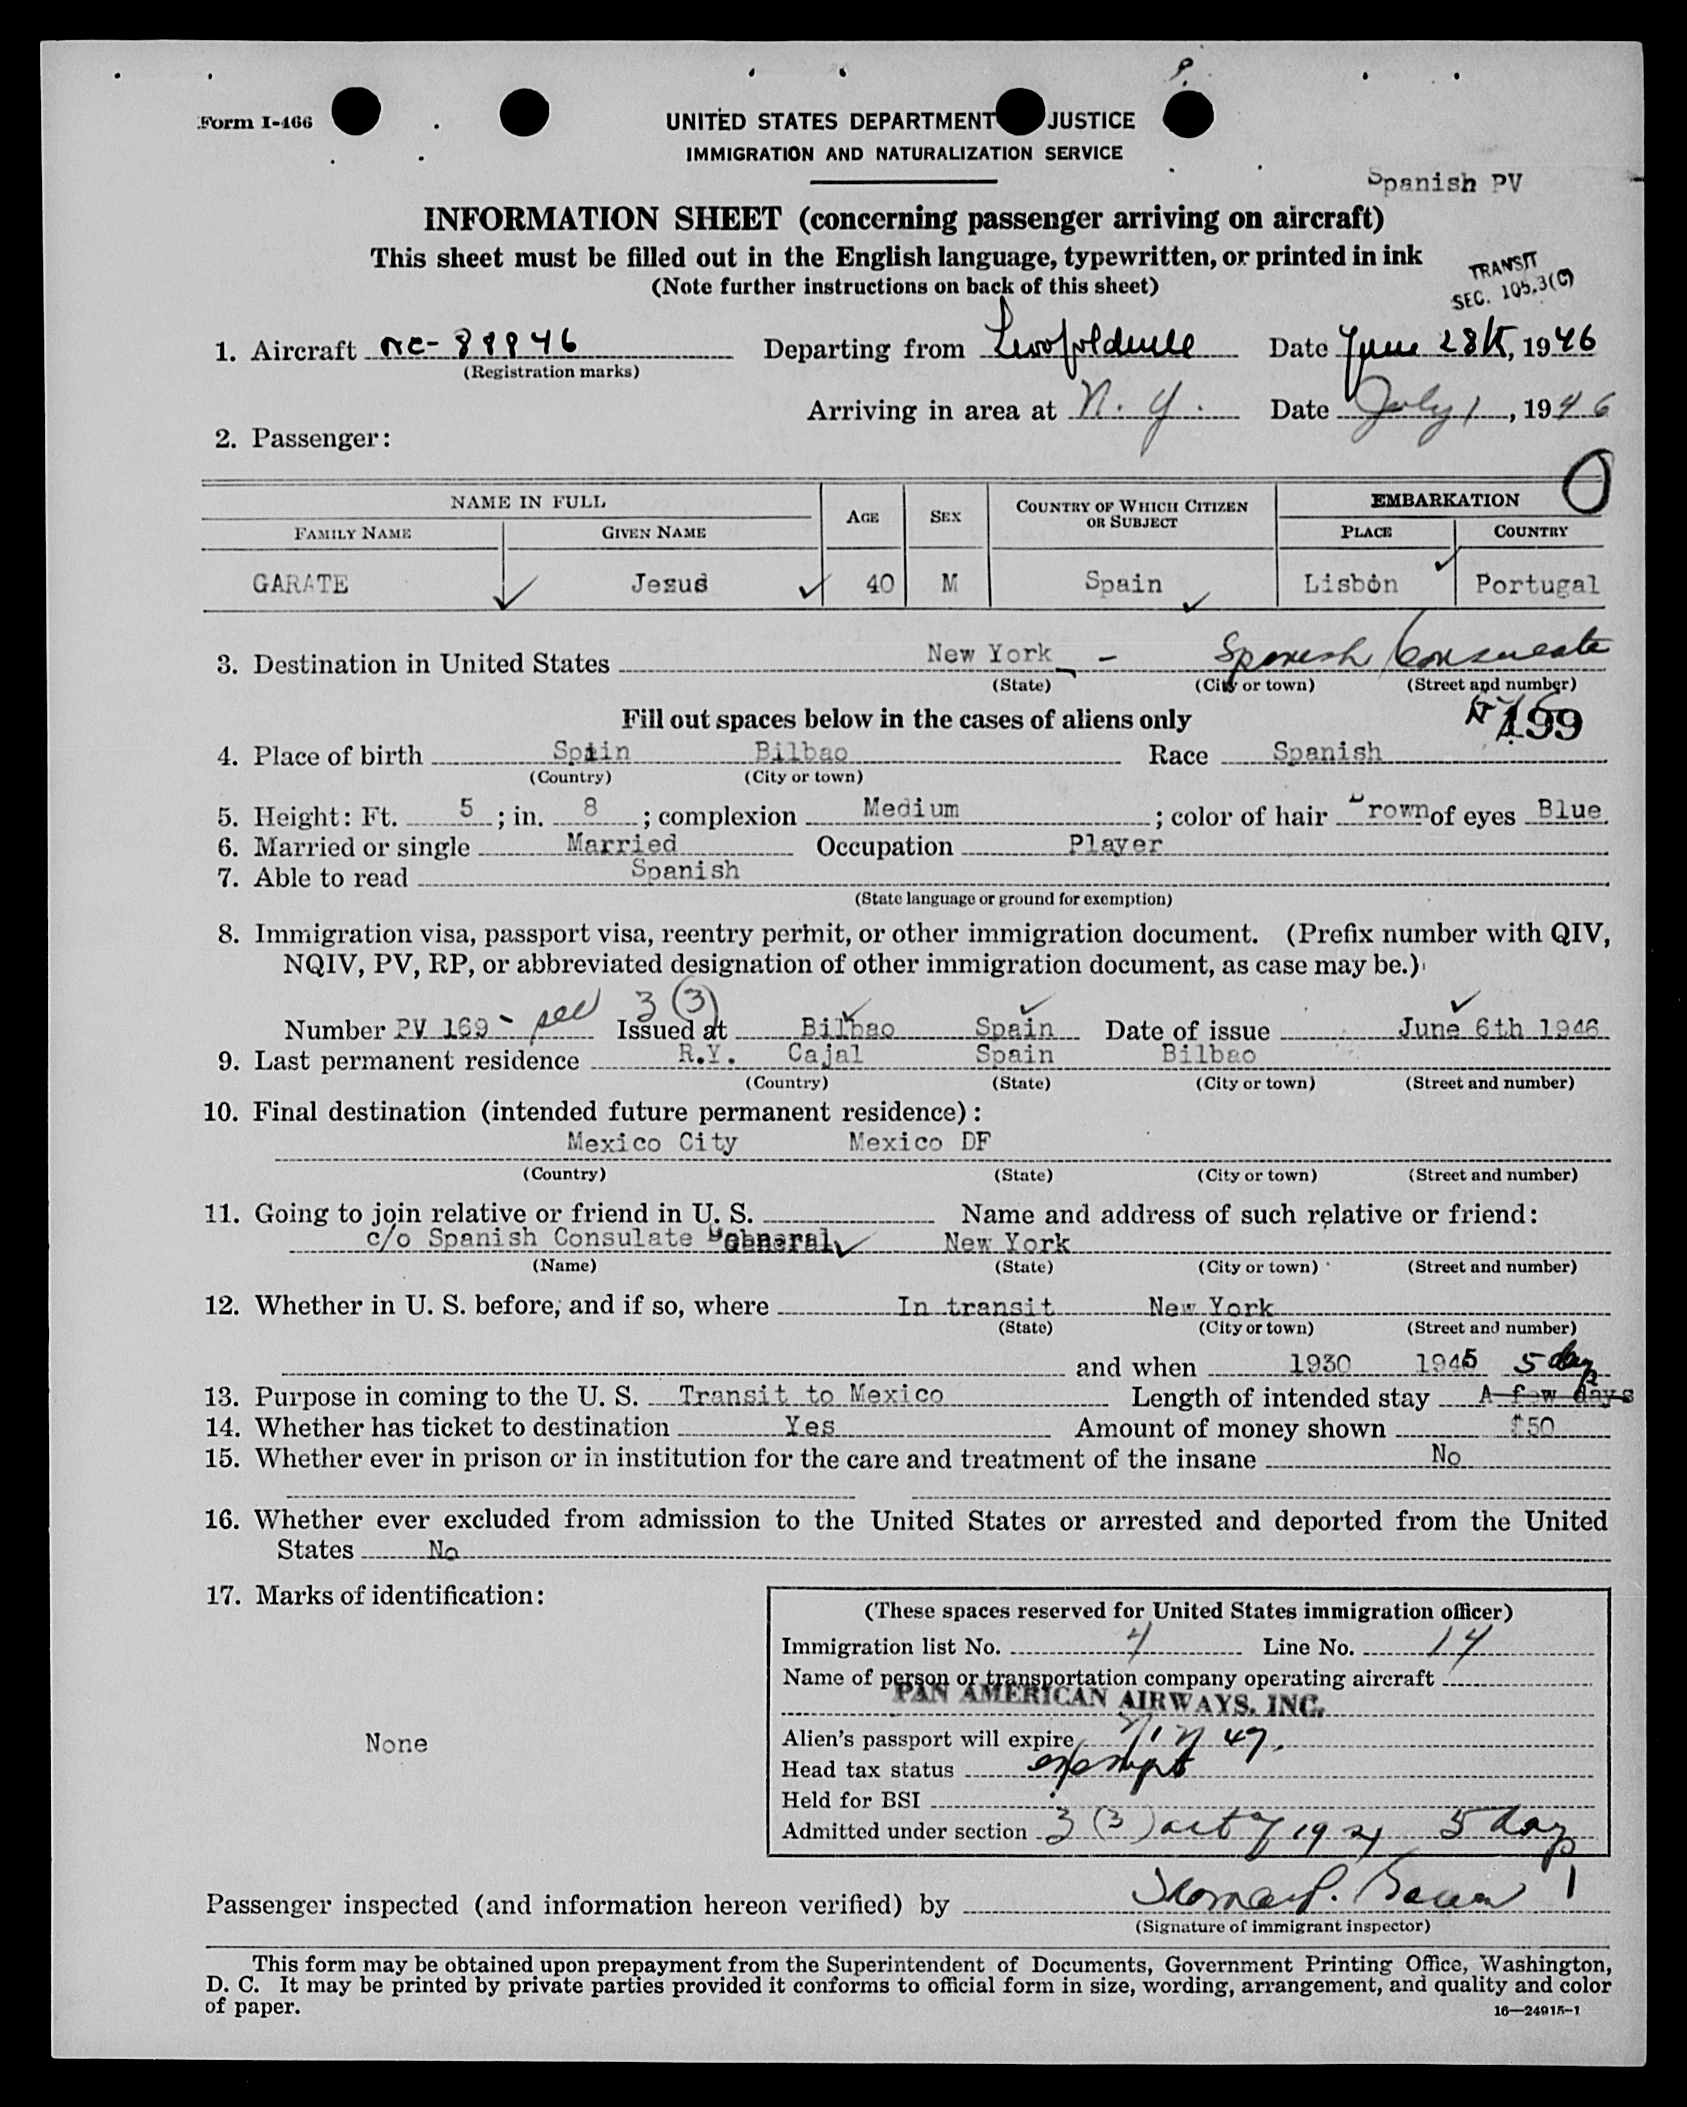 Form I-466
UNITED STATES DEPARTMENT JUSTICE
IMMIGRATION AND NATURALIZATION SERVICE
Spanish PV
INFORMATION SHEET (concerning passenger arriving on aircraft)
This sheet must be filled out in the English language, typewritten, or printed in ink
(Note further instructions on back of this sheet)
TRANSIT
SEC. 105.3(C)
1. Aircraft NC-88846 Departing from Leopoldville Date June 28th, 1946
(Registration marks)
Arriving in area at N.Y. Date July 1, 1946
2. Passenger:
NAME IN FULL AGE SEX COUNTRY OF WHICH CITIZEN OR SUBJECT EMBARKATION
FAMILY NAME GIVEN NAME PLACE COUNTRY
GARATE Jesus 40 M Spain Lisbon Portugal
3. Destination in United States New York - Spanish Consulate
(State) (City or town) (Street and number)
Fill out spaces below in the cases of aliens only
199
4. Place of birth Spiin Bilbao Race Spanish
(Country) (City or town)
5. Height: Ft. 5; in. 8; complexion Medium; color of hair Brown of eyes Blue
6. Married or single Married Occupation Player
7. Able to read Spanish
(State language or ground for exemption)
8. Immigration visa, passport visa, reentry permit, or other immigration document. (Prefix number with QIV,
NQIV, PV, RP, or abbreviated designation of other immigration document, as case may be.)
Number PV 169 - sec 3 (3) Issued at Bilbao Spain Date of issue June 6th 1946
9. Last permanent residence R.Y. Cajal Spain Bilbao
(Country) (State) (City or town) (Street and number)
10. Final destination (intended future permanent residence):
Mexico City Mexico DF
(Country) (State) (City or town) (Street and number)
11. Going to join relative or friend in U. S. Name and address of such relative or friend:
c/o Spanish Consulate General New York
(Name) (State) (City or town) (Street and number)
12. Whether in U. S. before, and if so, where In transit New York
(State) (City or town) (Street and number)
and when 1930 1945 5 days
13. Purpose in coming to the U. S. Transit to Mexico Length of intended stay A few days
14. Whether has ticket to destination Yes Amount of money shown $50
15. Whether ever in prison or in institution for the care and treatment of the insane No
16. Whether ever excluded from admission to the United States or arrested and deported from the United
States No
17. Marks of identification:
None
(These spaces reserved for United States immigration officer)
Immigration list No. 4 Line No. 14
Name of person or transportation company operating aircraft
PAN AMERICAN AIRWAYS, INC.
Alien's passport will expire
Head tax status exempt
Held for BSI
Admitted under section 3 (3) act of 1924 5 days
Passenger inspected (and information hereon verified) by
(Signature of immigrant inspector)
This form may be obtained upon prepayment from the Superintendent of Documents, Government Printing Office, Washington,
D. C. It may be printed by private parties provided it conforms to official form in size, wording, arrangement, and quality and color
of paper.
16—24915-1